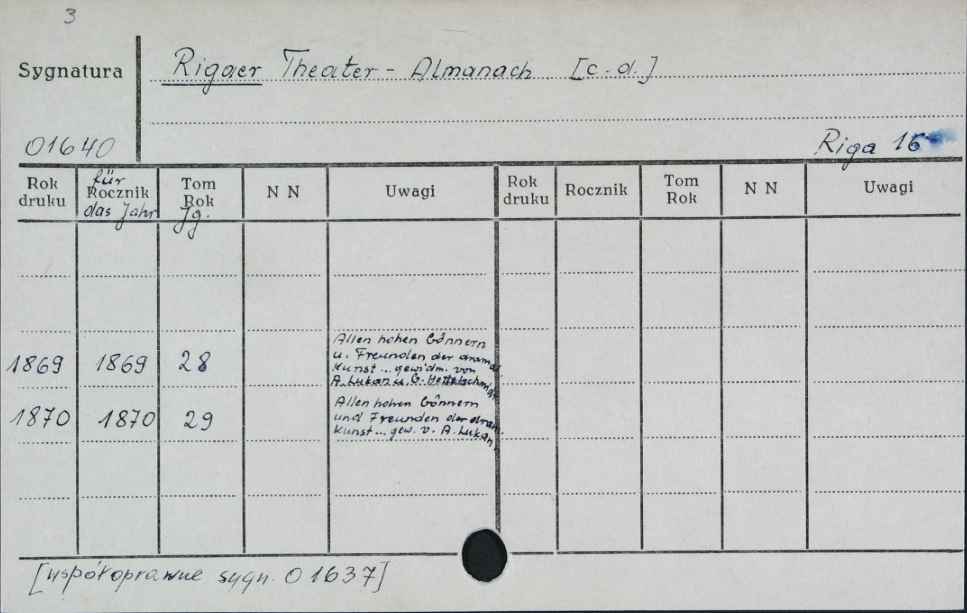 3
Sygnatura
Rigaer Theater - Almanach [c.d.]
01640
Riga 16
Rok druku
für Rocznik das Jahr
Tom Rok Jg.
N N
Uwagi
Rok druku
Rocznik
Tom Rok
N N
Uwagi
1869 1869 28
Allen hohen Gönnern
u. Freunden der dramat.
Kunst ... gewidm. von
A. Lukan u. G.
1870 1870 29
Allen hohen Gönnern
und Freunden der dram.
Kunst ... gew. v. A. Lukan
[współoprawne sygn. 01637]